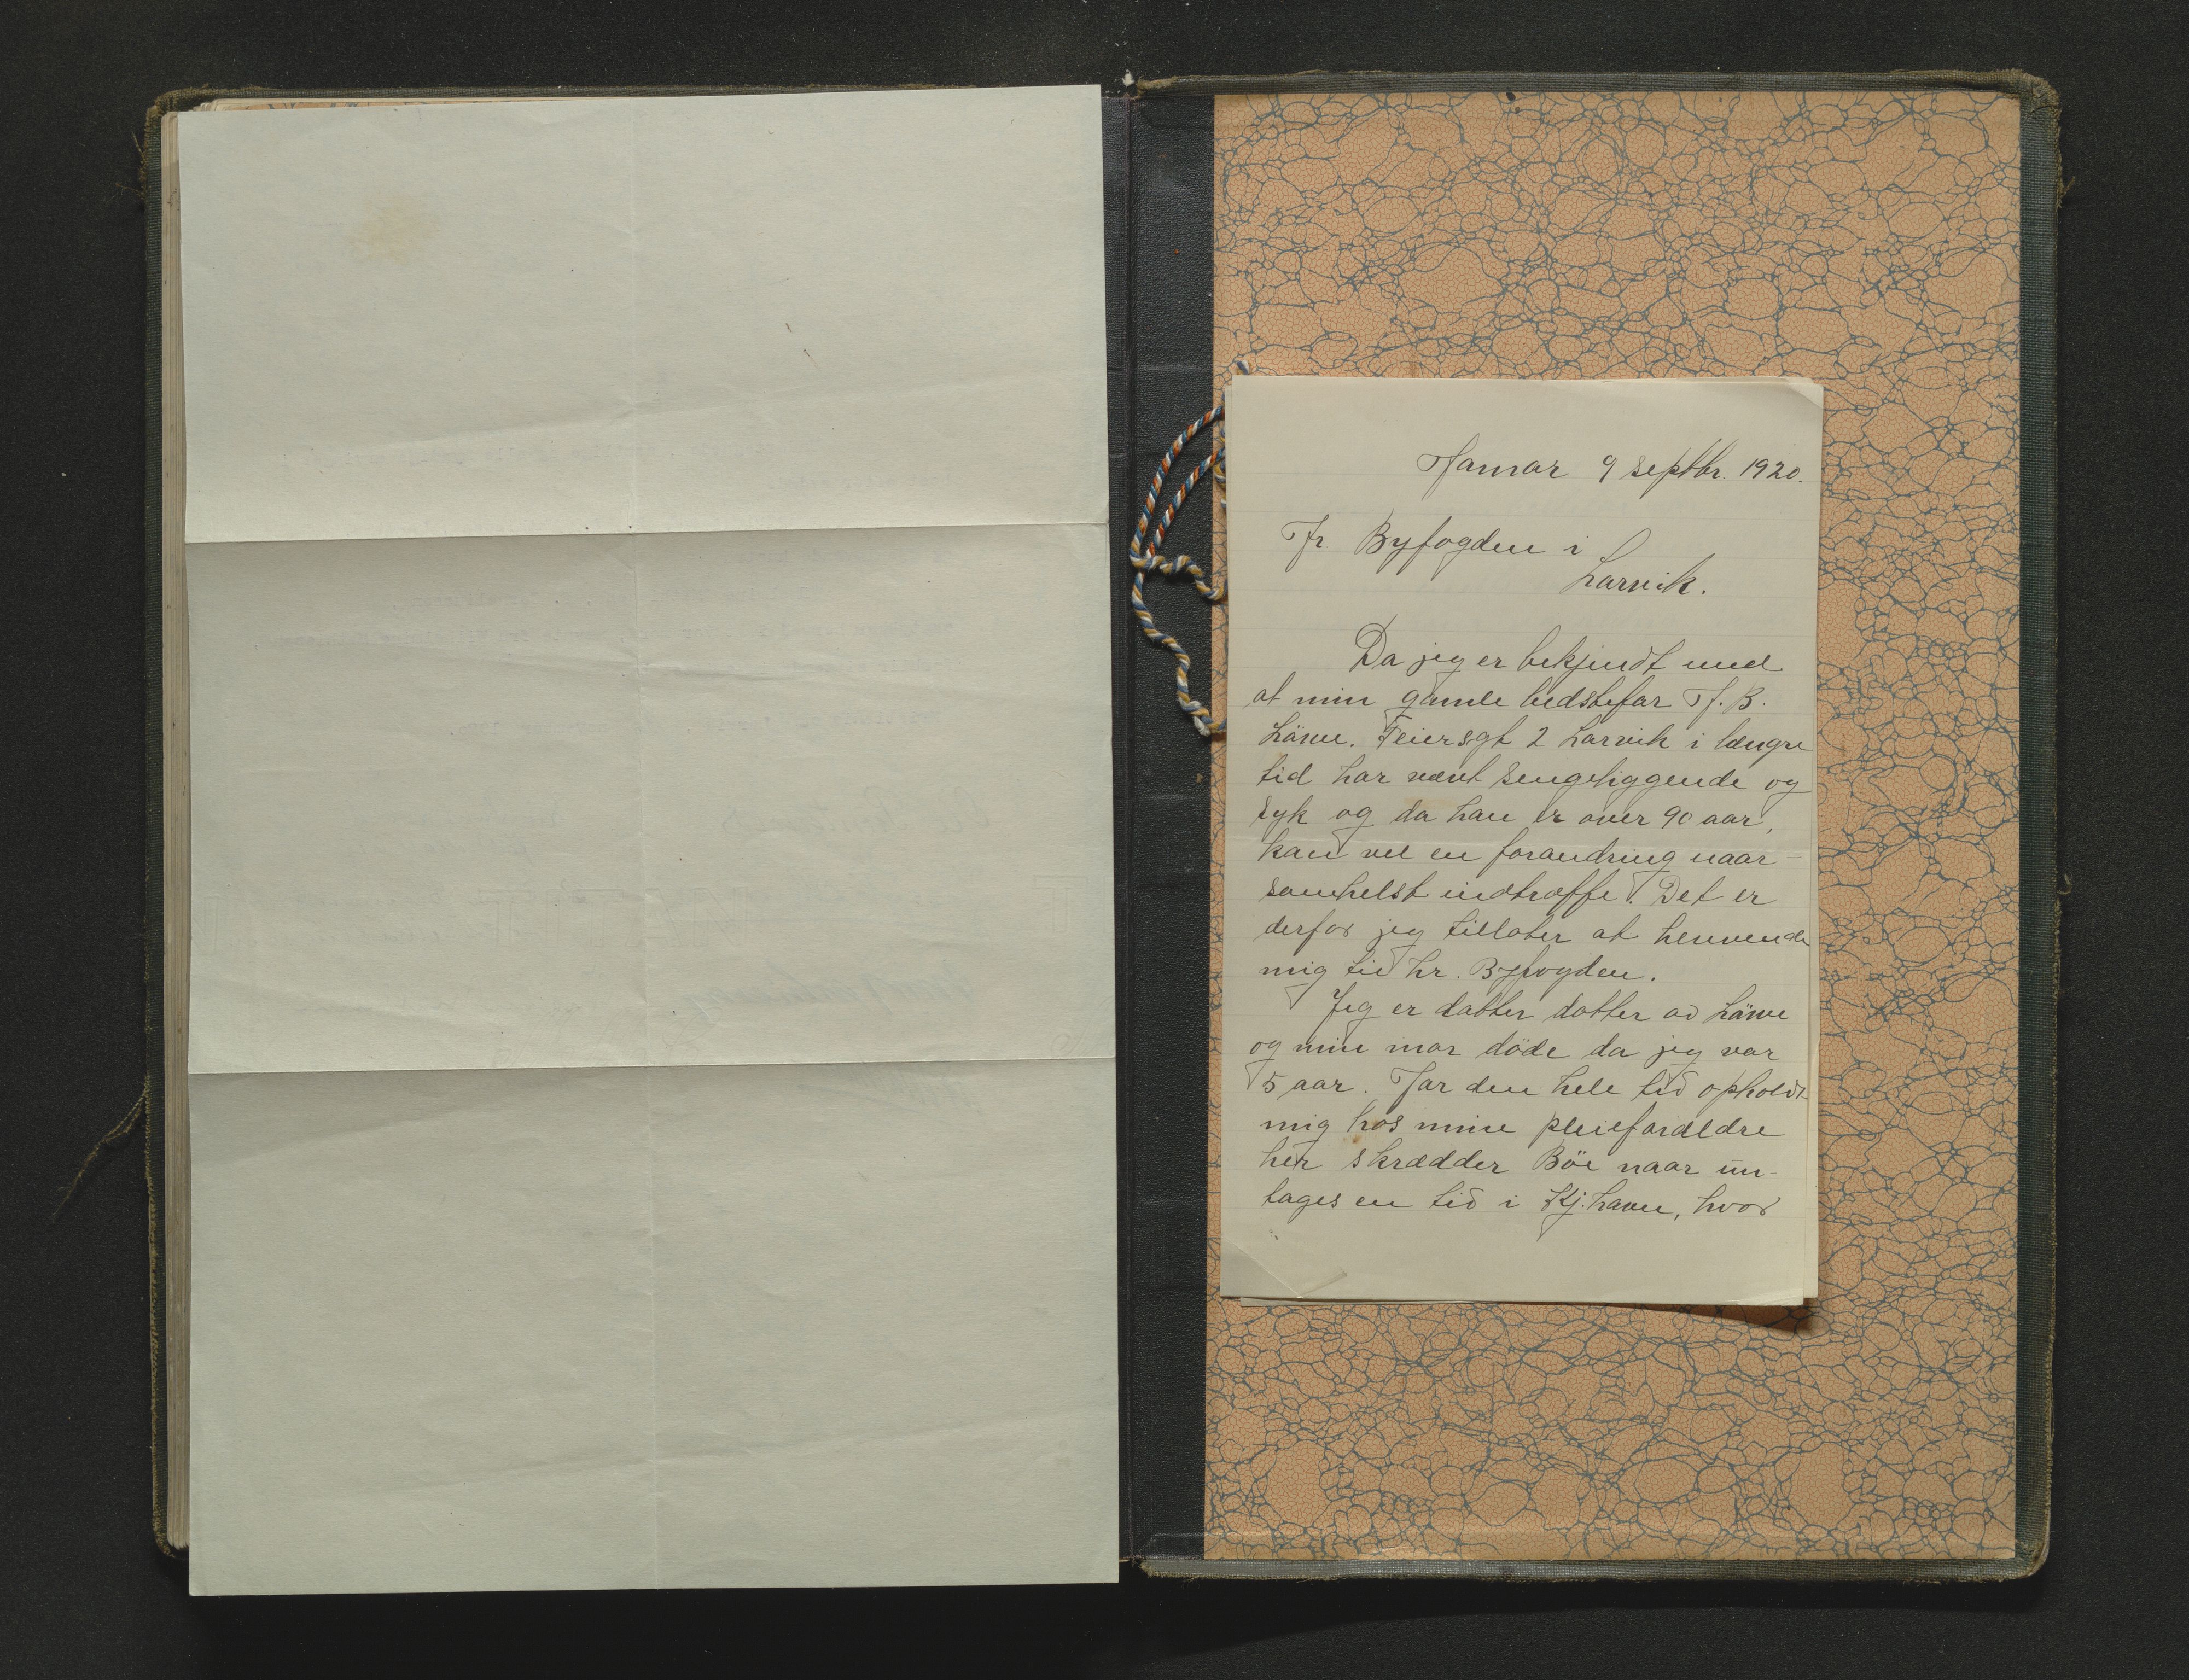 Hamar 9 septbr. 1920.
Hr. Byfogden i
Larvik.
Da jeg er bekjendt med
at min gamle bedstefar H. B.
Läwe. Feiersgt 2 Larvik i længre
tid har været sengeliggende og
syk og da han er over 90 aar,
kan vel en forandring naar-
somhelst indtræffe. Det er
derfor jeg tillater at henvende
mig til hr. Byfogden.
Jeg er datter datter av Läwe
og min mor døde da jeg var
5 aar. Har den hele tid opholdt
mig hos mine pleieforældre
her skrædder Böe naar un-
tages en tid i Kj.havn, hvor